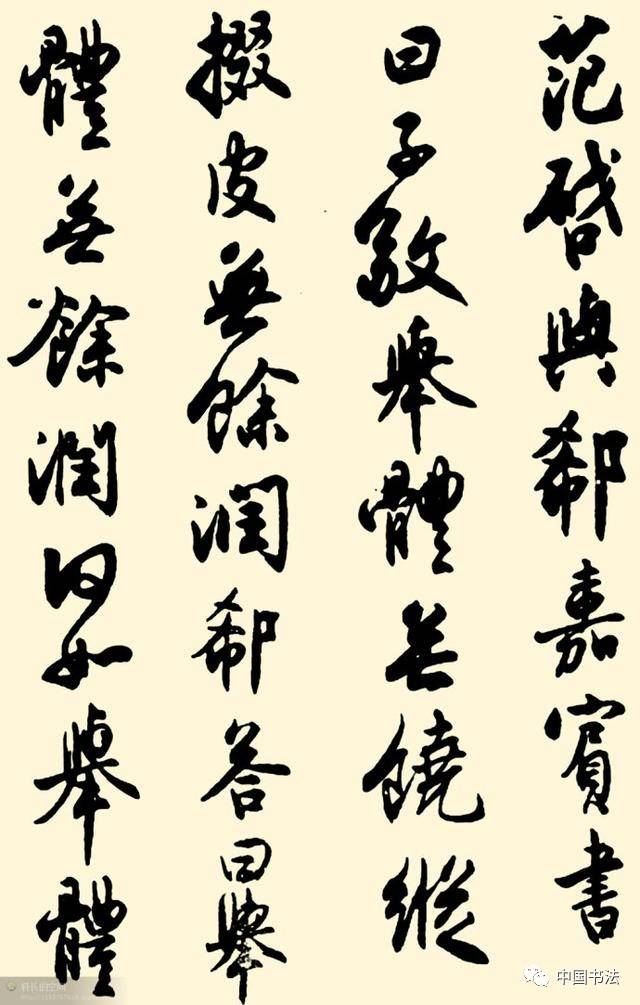 范啓與郗嘉賓書
曰子敬舉體無饒縱
掇皮無餘潤郗答曰舉
體無餘潤何如舉體
中国书法
科长的空间